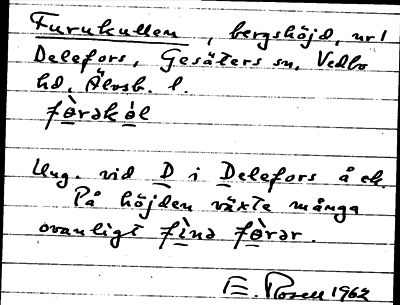 Furukullen, bergshöjd, nr 1
Delefors, Gesäters sn, Vedbo
hd, Älvsb. l.
fòrəkòl
Ung. vid D i Delefors å ek.
På höjden växte många
ovanligt fìnə fòrər.
E. Rosell 1962